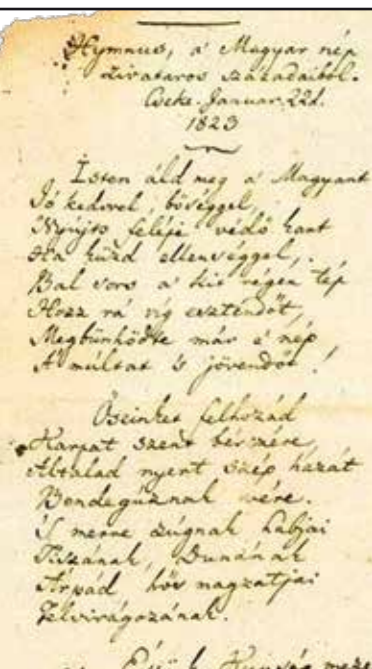 Hymnus, a' Magyar nép
zivataros századaiból.
Cseke. Januar. 22d.
1823
Isten áld meg a' Magyart
Jó kedvvel, bőséggel,
Nyújts feléje védő kart
Ha küzd ellenséggel,
Bal sors a' kit régen tép
Hozz rá víg esztendőt,
Megbünhődte már e' nép
A' múltat 's jövendőt!
Őseinket felhozád
Kárpát szent bérczére,
Általad nyert szép hazát
Bendegúznak vére.
'S merre zúgnak habjai
Tiszának, Dunának
Árpád hős magzatjai
Felvirágozának.